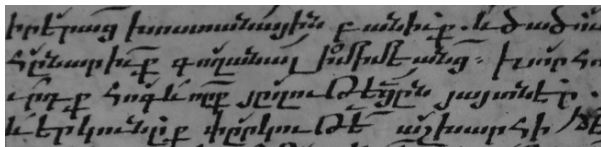 իրերաց խոստանային բանիւք. և ծածու
հնարիւք գողանալ զմիմեանց. խորհ
հոգևորք յղութեցն յայտնէր.
և երկունք փրկութե աշխարհի